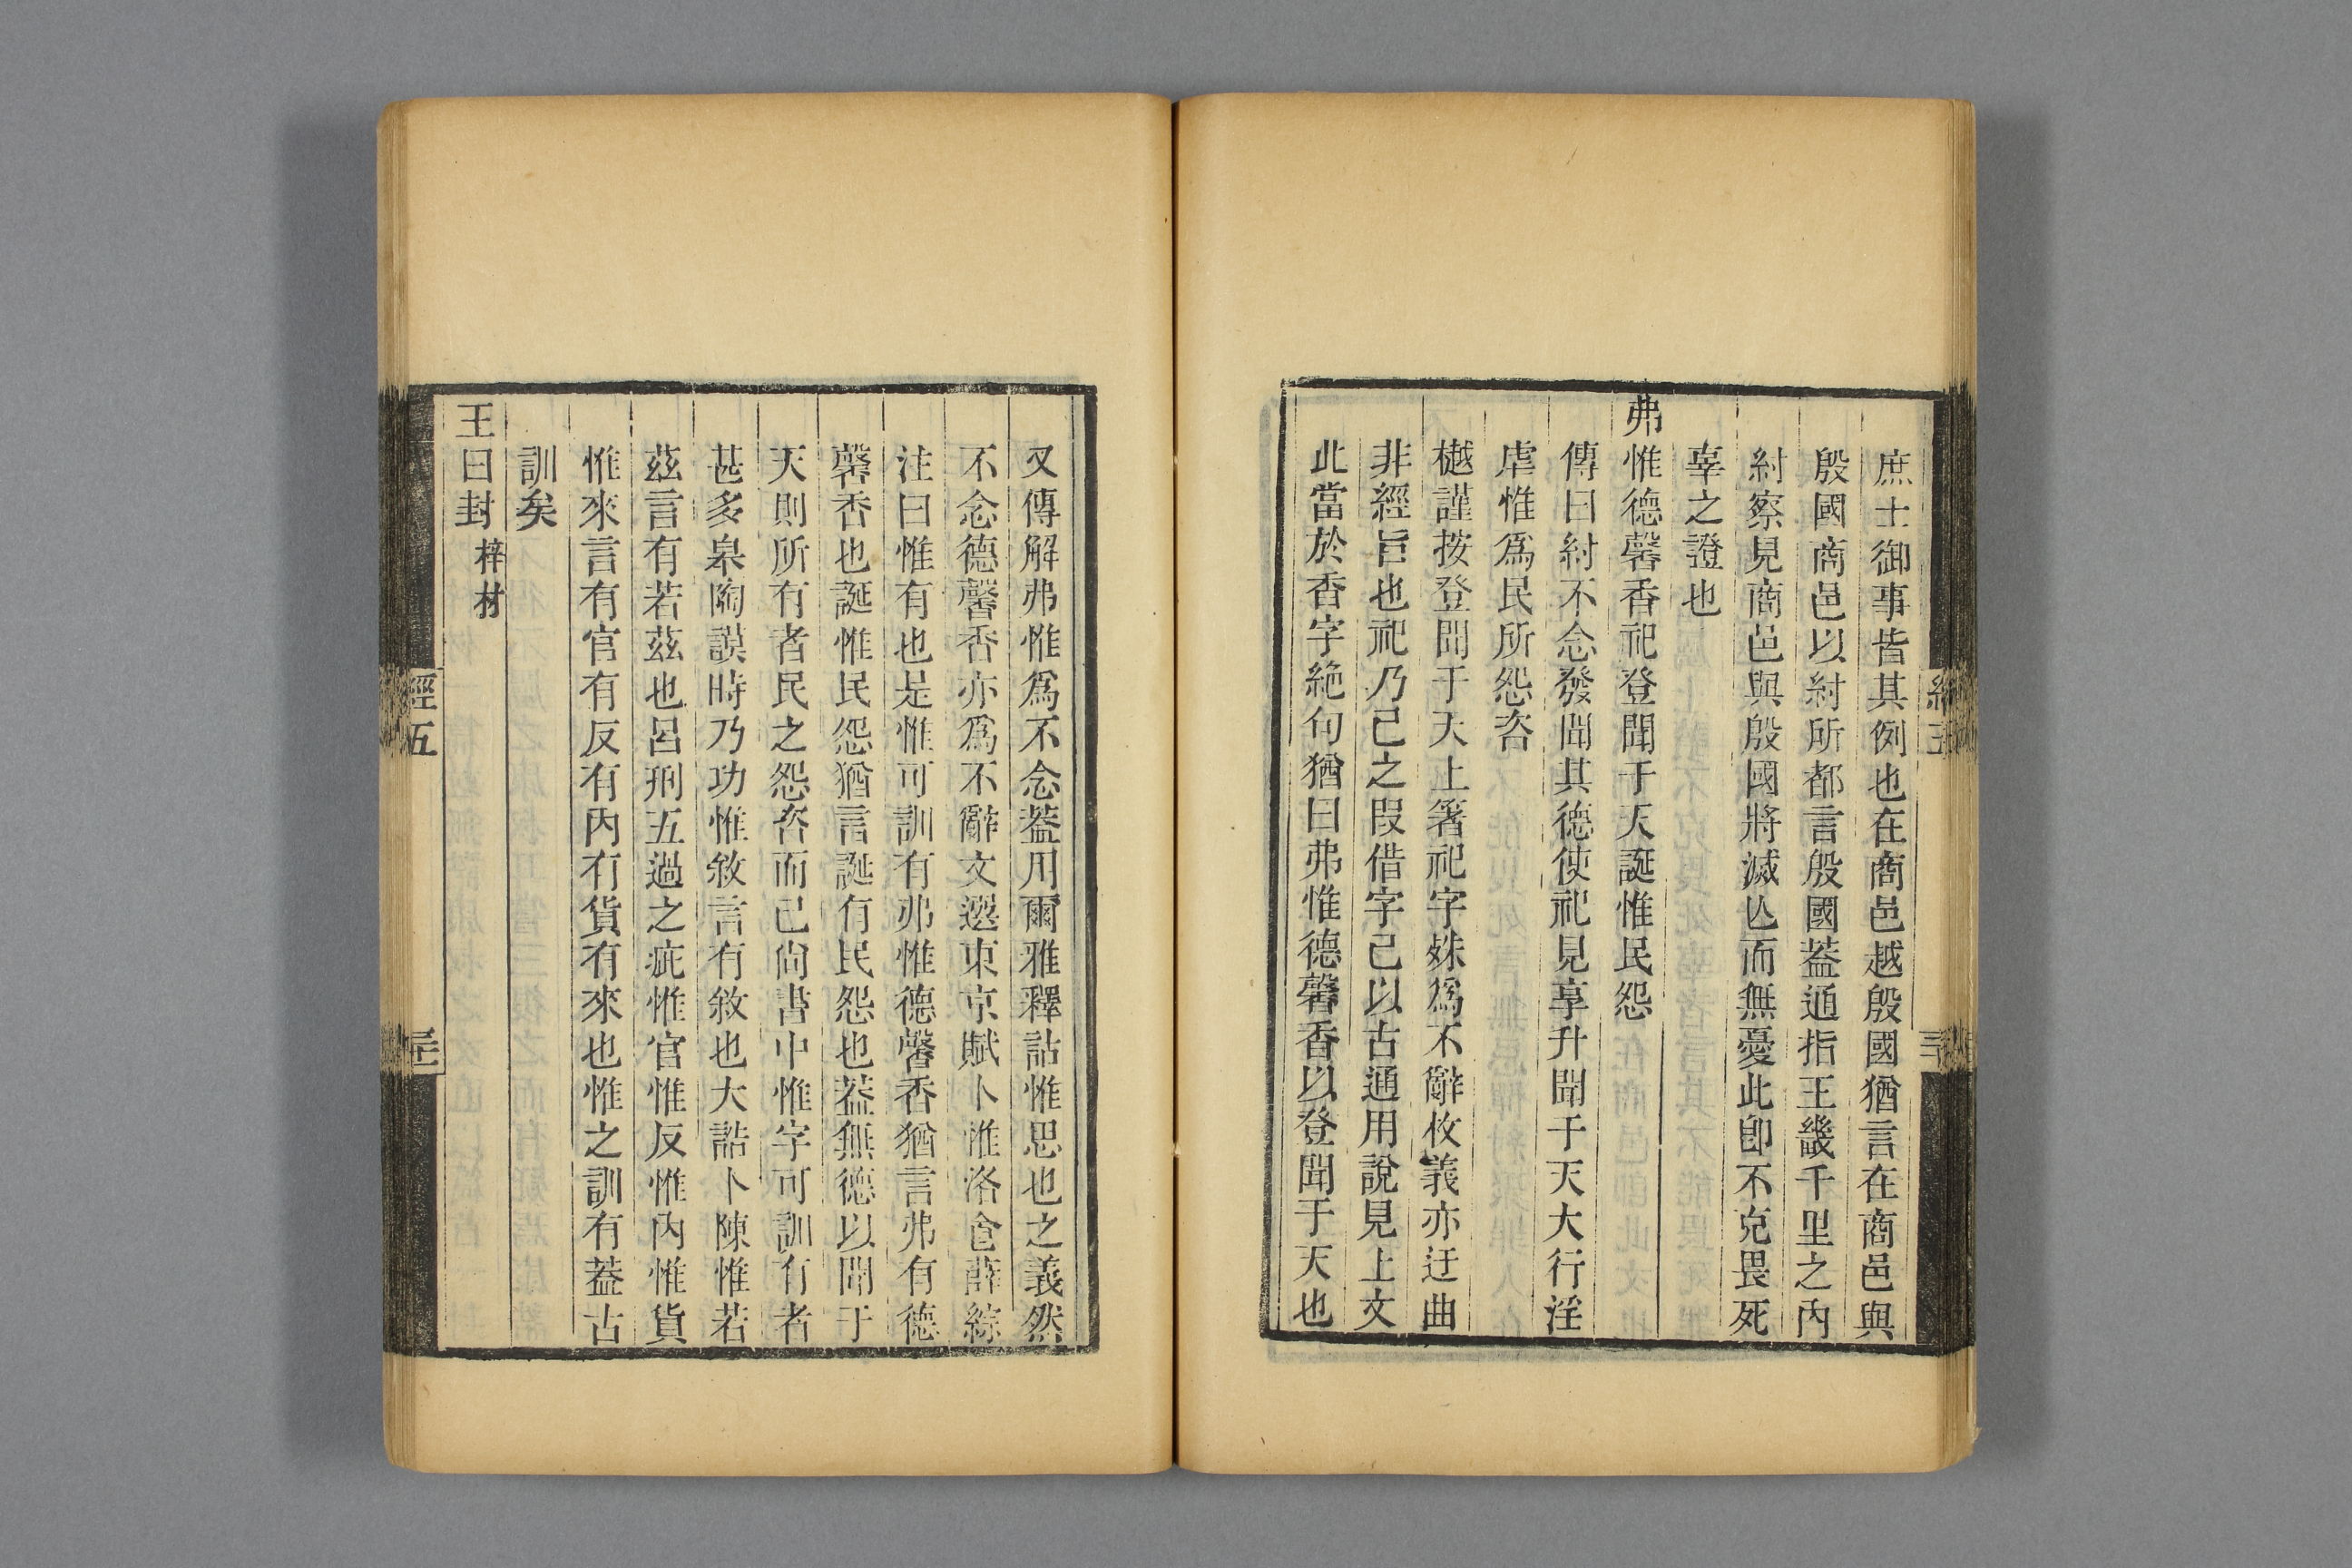 庶士御事皆其例也在商邑越殷國猶言在商邑與
殷國商邑以紂所都言殷國葢通指王畿千里之內
紂察見商邑與殷國將滅亾而無憂此卽不克畏死
辜之證也
弗惟德馨香祀登聞于天誕惟民怨
傳曰紂不念發聞其德使祀見享升聞于天大行淫
虐惟爲民所怨咨
樾謹按登聞于天上箸祀字殊爲不辭枚義亦迂曲
非經旨也祀乃己之叚借字己以古通用說見上文
此當於香字絶句猶曰弗惟德馨香以登聞于天也
又傳解弗惟爲不念葢用爾雅釋詁惟思也之義然
不念德馨香亦爲不辭文選東京賦卜惟洛食薛綜
注曰惟有也是惟可訓有弗惟德馨香猶言弗有德
馨香也誕惟民怨猶言誕有民怨也葢無德以聞于
天則所有者民之怨咨而已尙書中惟字可訓有者
甚多臯陶謨時乃功惟敘言有敘也大誥卜陳惟若
茲言有若茲也呂刑五過之疵惟官惟反惟內惟貨
惟來言有官有反有內有貨有來也惟之訓有葢古
訓矣
王曰封梓材
經五